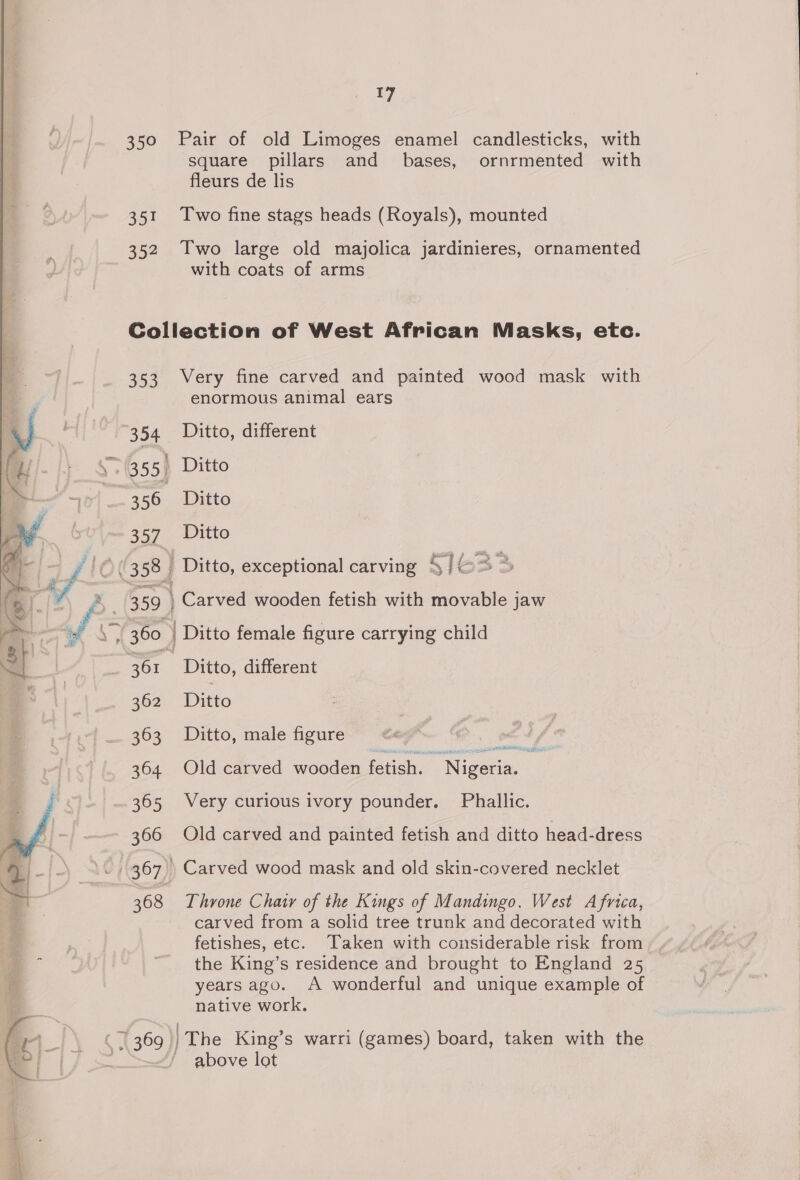 17
350 Pair of old Limoges enamel candlesticks, with
square pillars and bases, ornrmented with
fleurs de lis
351 Two fine stags heads (Royals), mounted
352 Two large old majolica jardinieres, ornamented
with coats of arms
Collection of West African Masks, etc.
353 Very fine carved and painted wood mask with
enormous animal ears
354 Ditto, different
355 Ditto
356 Ditto
357 Ditto
358 Ditto, exceptional carving
359 Carved wooden fetish with movable jaw
360 Ditto female figure carrying child
361 Ditto, different
362 Ditto
363 Ditto, male figure
364 Old carved wooden fetish. Nigeria.
365 Very curious ivory pounder. Phallic.
366 Old carved and painted fetish and ditto head-dress
367 Carved wood mask and old skin-covered necklet
368 Throne Chair of the Kings of Mandingo. West Africa,
carved from a solid tree trunk and decorated with
fetishes, etc. Taken with considerable risk from
the King's residence and brought to England 25
years ago. A wonderful and unique example of
native work.
369 The King's warri (games) board, taken with the
above lot